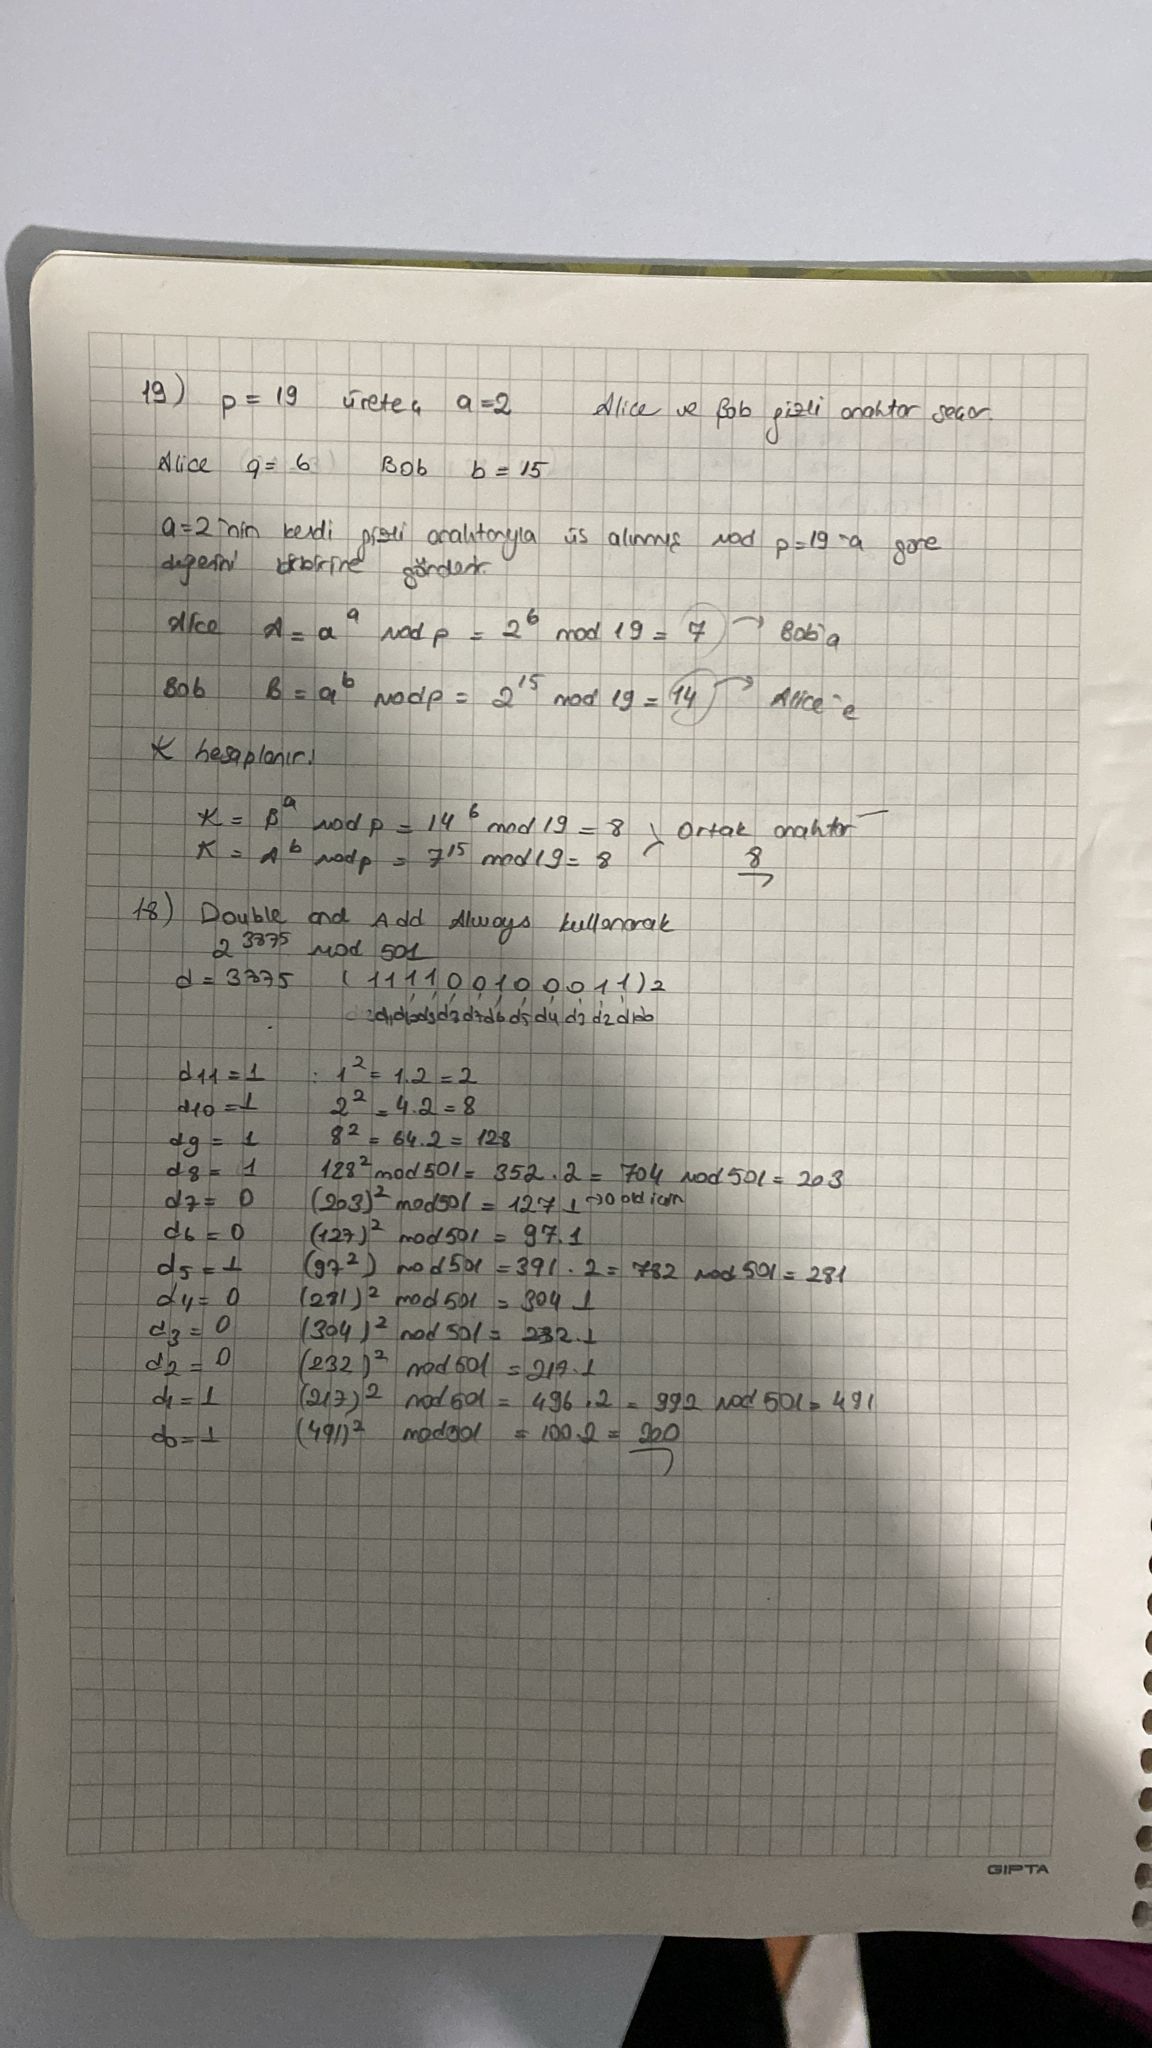 19) p = 19 üreteç a=2 Alice ve Bob gizli anahtar seçer.
Alice a= 6 Bob b = 15
a=2'nin kendi gizli anahtarıyla üs alınmış mod p=19'a göre
değerini birbirine gönderir.
Alice A = a^a mod p = 2^6 mod 19 = 7 → Bob'a
Bob B = a^b mod p = 2^15 mod 19 = 14 → Alice'e
K hesaplanır.
K = B^a mod p = 14^6 mod 19 = 8 > Ortak anahtar
K = A^b mod p = 7^15 mod 19 = 8 8
18) Double and Add Always kullanarak
2^3875 mod 501
d = 3875 (111100100011)2
d11d10d9d8d7d6d5d4d3d2d1d0
d11 = 1 : 1^2 = 1.2 = 2
d10 = 1 2^2 = 4.2 = 8
d9 = 1 8^2 = 64.2 = 128
d8 = 1 128^2 mod 501 = 352.2 = 704 mod 501 = 203
d7 = 0 (203)^2 mod 501 = 127.1 → 0 old için
d6 = 0 (127)^2 mod 501 = 97.1
d5 = 1 (97^2) mod 501 = 391.2 = 782 mod 501 = 281
d4 = 0 (281)^2 mod 501 = 304.1
d3 = 0 (304)^2 mod 501 = 232.1
d2 = 0 (232)^2 mod 501 = 217.1
d1 = 1 (217)^2 mod 501 = 496.2 = 992 mod 501 = 491
d0 = 1 (491)^2 mod 501 = 100.2 = 200
GIPTA